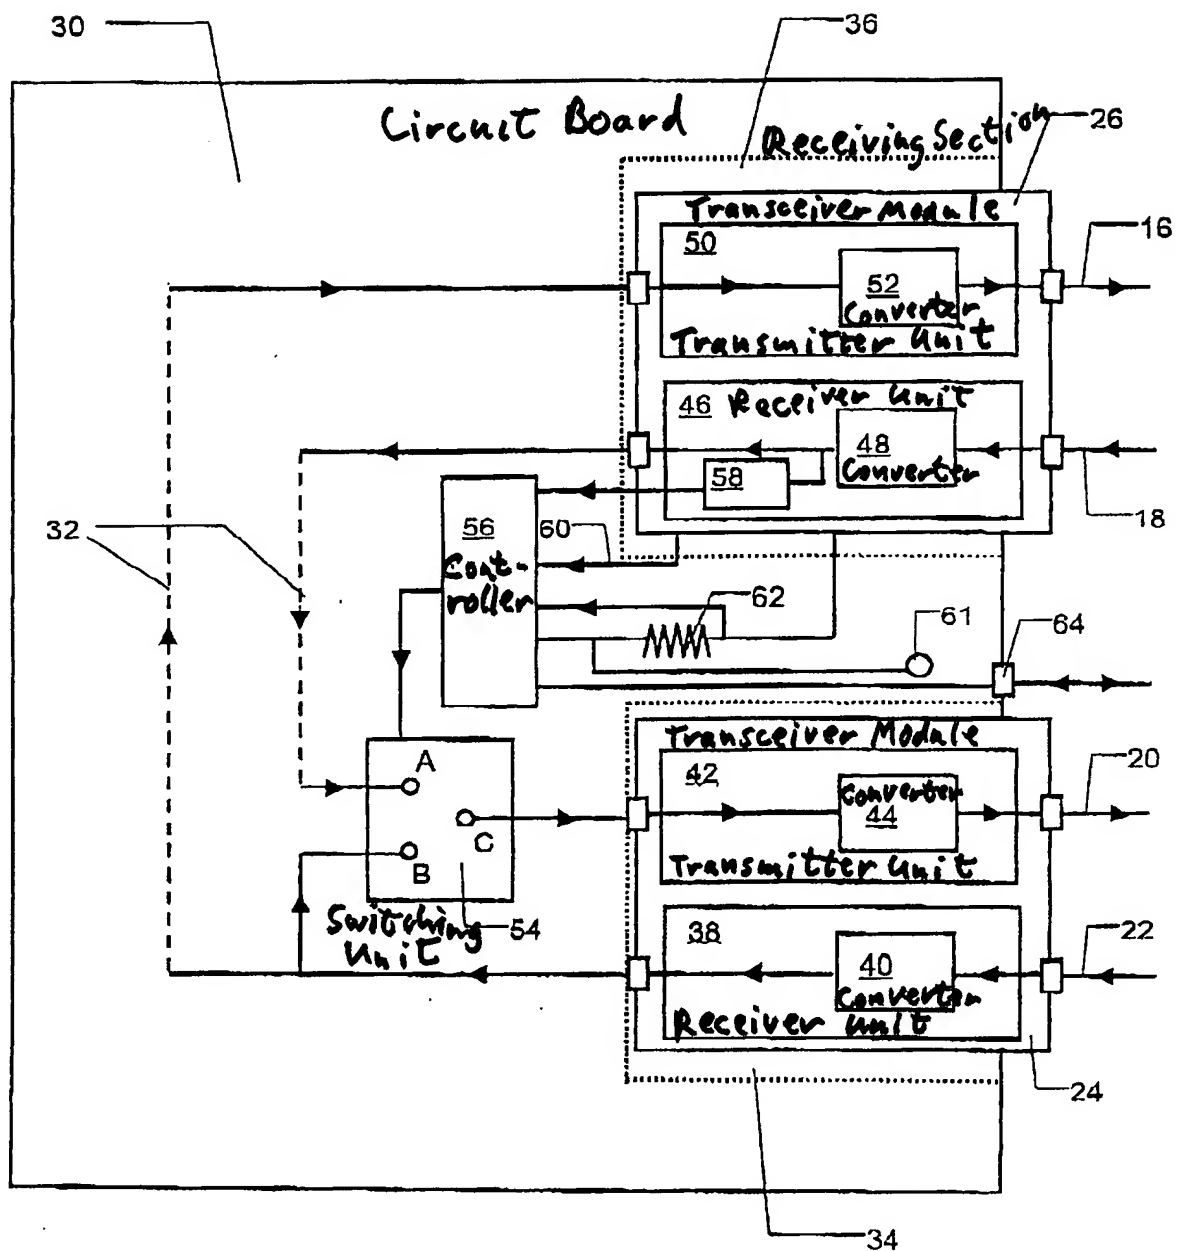 30
36
Circuit Board
Receiving Section
26
Transceiver Module
50
16
52
Converter
Transmitter Unit
46 Receiver Unit
48
Converter
58
18
32
56
Cont-
roller
60
62
61
64
Transceiver Module
A
42
Converter
44
20
C
B
Transmitter Unit
Switching
Unit
54
38
22
40
Converter
Receiver Unit
24
34